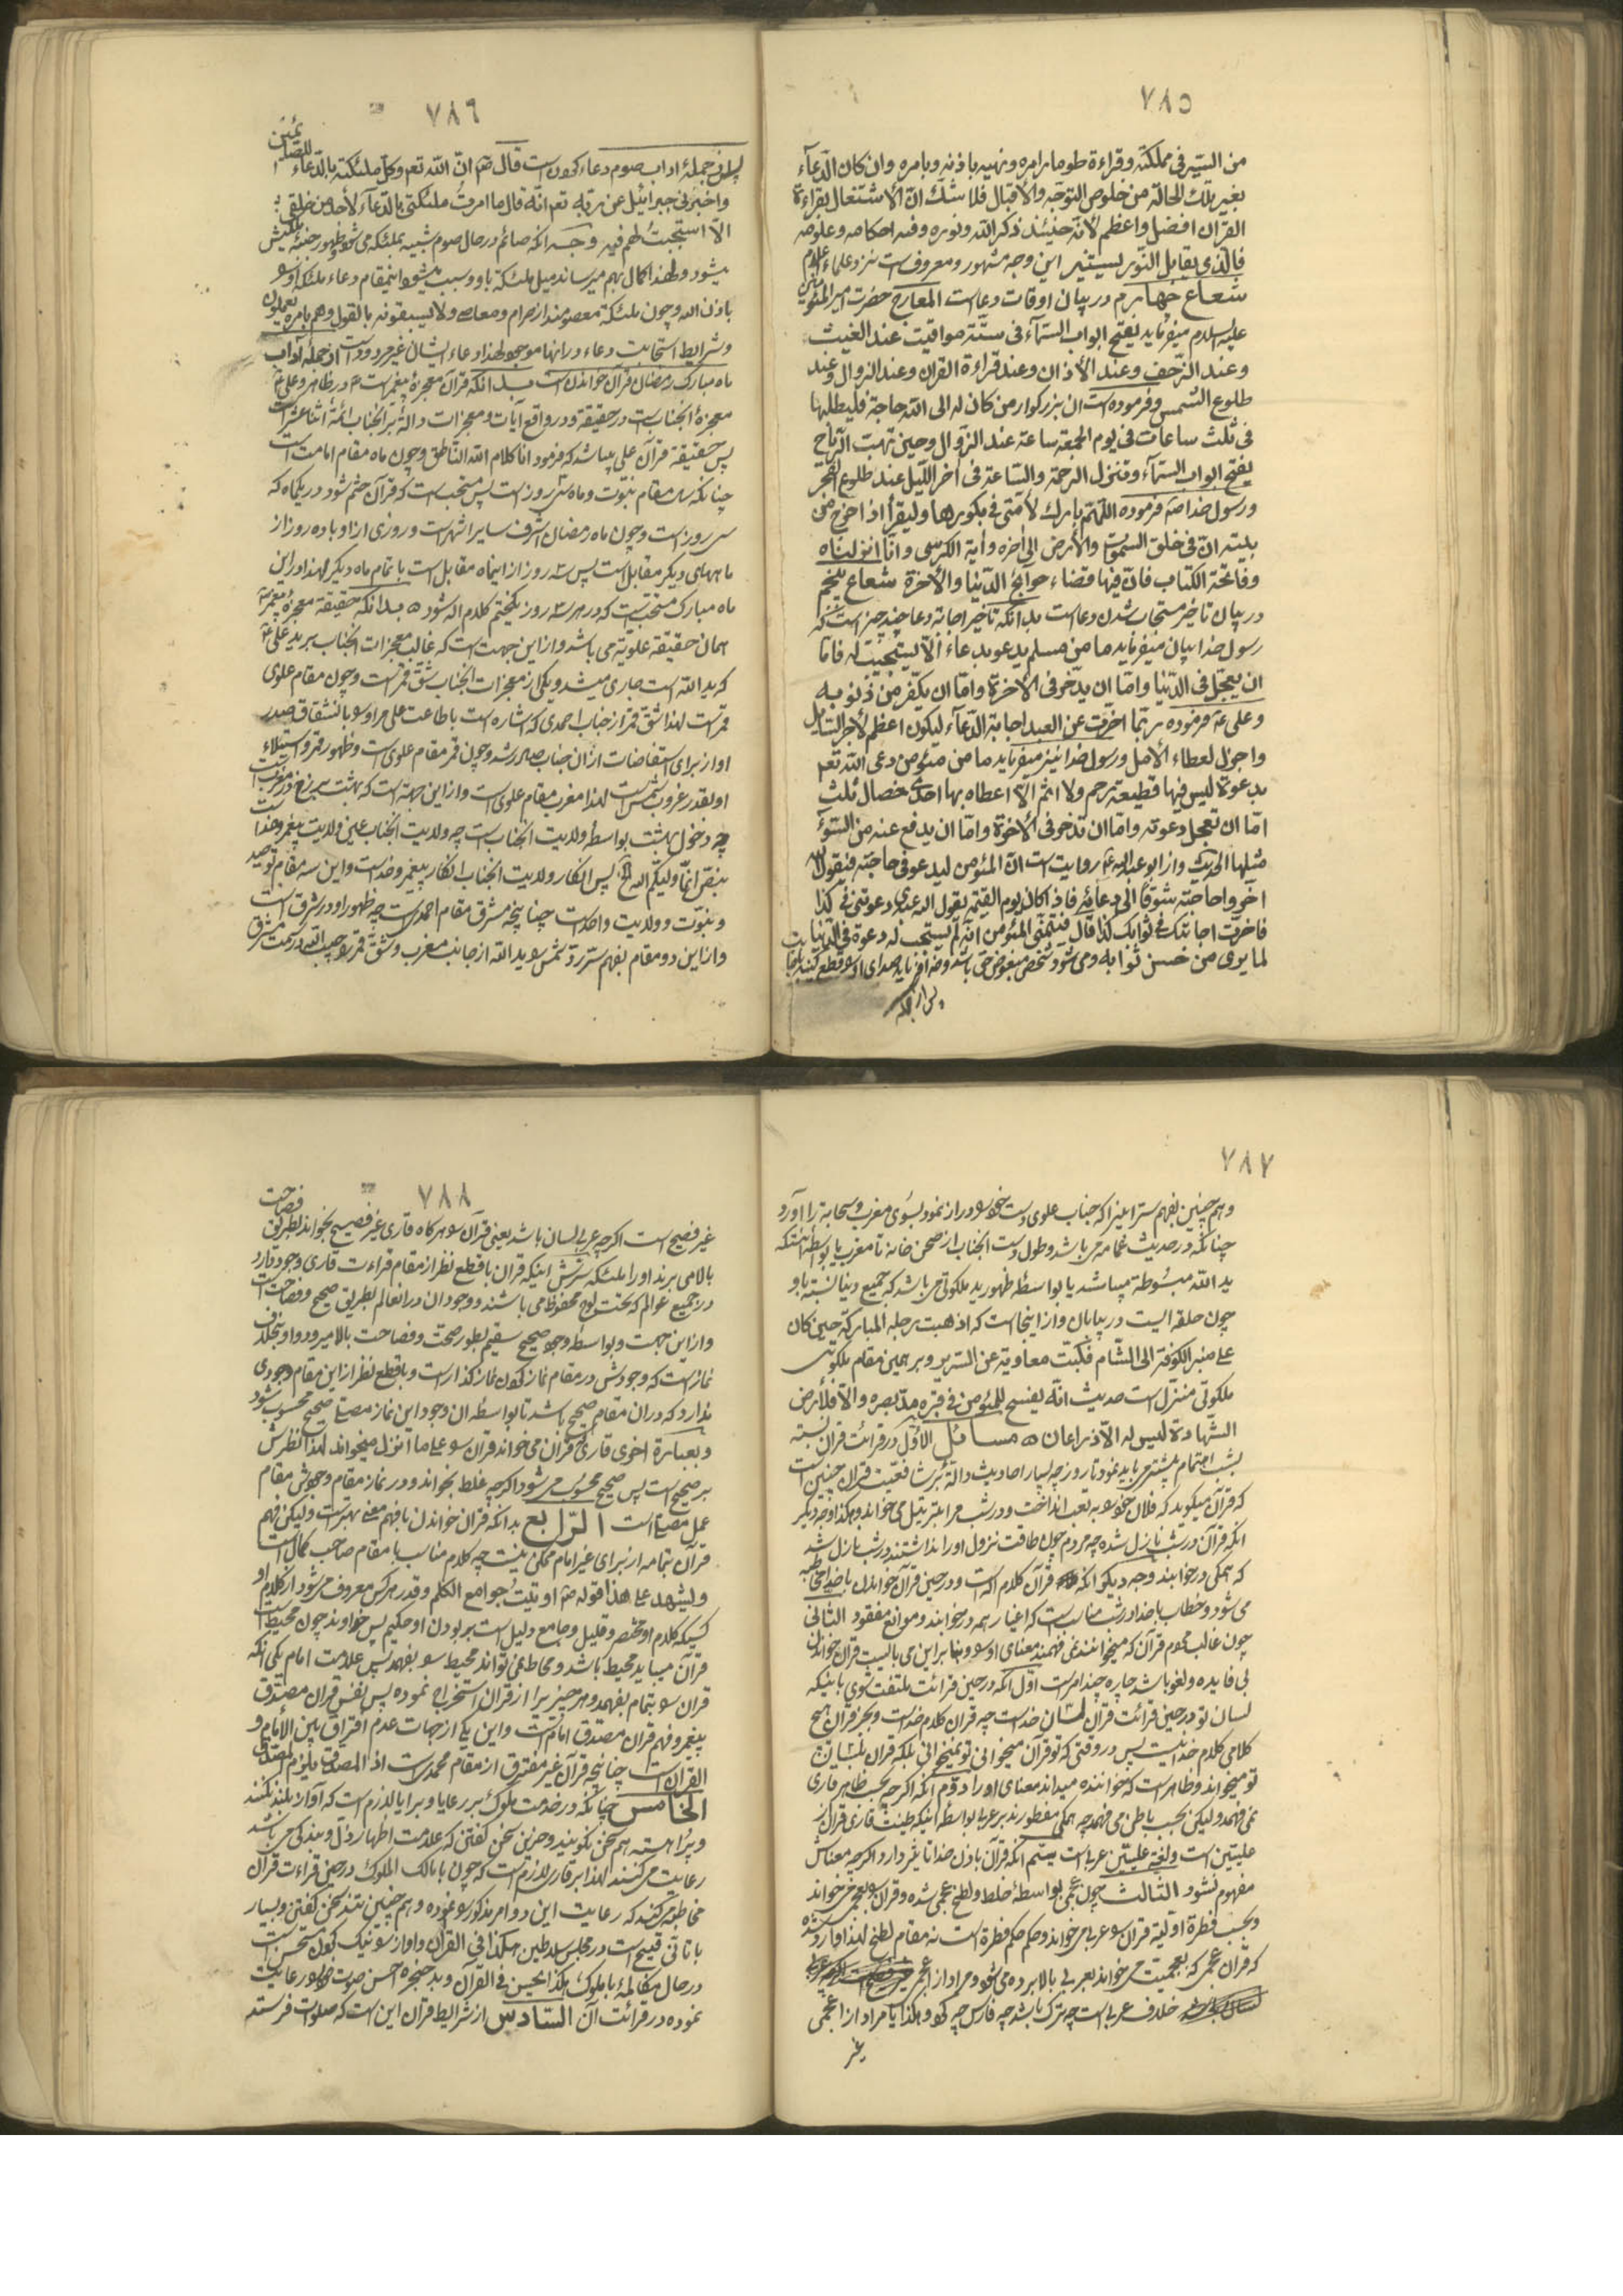 ٧٨٥
من السير فى مملكته وقراءة طومار امره ونهيه باذنه وبامره وان كان الدعآء
بغير تلك الحالة من خلوص التوجه والاقبال فلا شك ان الاشتغال بقراءة
القران افضل واعظم لانه حينئذ ذكر الله ونوره وفيه احكامه وعلومه
فالذى يقابل النور يستنير اين وجه مشهور ومعروفست نزد علماء اعلام
شعاع چهارم در بيان اوقات دعا است المعارج حضرت امير المؤمنين
عليه السلام ميفرمايد يفتح ابواب السمآء فى ستة مواقيت عند الغيث
وعند الزحف وعند الأذان وعند قراءة القران وعند الزوال وعند
طلوع الشمس وفرموده است ان بزركوار من كان له الى الله حاجة فليطلبها
فى ثلث ساعات فى يوم الجمعة ساعة عند الزوال وحين تهب الرياح
يفتح ابواب السمآء وتنزل الرحمة والساعة فى اخر الليل عند طلوع الفجر
ورسول خدا صه فرموده اللهم بارك لأمتى فى بكورها وليقرأ اذا خرج من
بيته ان فى خلق السموات والأرض الى اخره وآية الكرسى وانا انزلناه
وفاتحة الكتاب فان فيها قضاء حوائج الدنيا والاخرة شعاع پنجم
در بيان تاخير مستجاب شدن دعا است بدانكه تأخير اجابة دعا چند چيز است كه
رسول خدا بيان ميفرمايد ما من مسلم يدعو بدعاء الا يستجيب له فاما
ان يعجل فى الدنيا واما ان يدخر فى الآخرة واما ان يكفر من ذنوبه
وعلى عه فرموده ربما اخرت عن العبد اجابة الدعآء ليكون اعظم لأجر السايل
واجزل لعطاء الامل ورسول خدا نيز ميفرمايد ما من مؤمن دعى الله تعم
بدعوة ليس فيها قطيعة رحم ولا اثم الا اعطاه بها احدى خصال ثلث
اما ان تعجل دعوته واما ان تدخر فى الاخرة واما ان يدفع عنه من السوء
مثلها الحديث واز ابو عبدالله عه روايت است ان المؤمن ليدعو فى حاجته فيقول الله
اخروا حاجته شوقا الى دعائه فاذا كان يوم القيمة يقول الله عبدى دعوتنى فى كذا
فاخرت اجابتك فى ثوابك كذا قال فيتمنى المؤمن انه لم يستجب له دعوة فى الدنيا
لما يرى من حسن ثوابه ومى شود شخص مبغوض حق باشد وخدا فرمايد صداى او قطع كنيد
پس از جمله
٧٨٦
پس از جمله اداب صوم دعاء كردن است قال صم ان الله تعم وكل ملئكته بالدعاء للصائمين
واخبرنى جبرائيل عن ربه تعم انه قال ما امرت ملئكتى بالدعآء لأحد من خلقى
الا استجبت لهم فيه وجه انكه صائم در حال صوم شبيه بملئكه مى شود وظهور جنبه ملكيش
ميشود ولهذا كمال بهم ميرساند ميل ملئكه باو وسبب ميشود اين مقام دعاء ملئكه اورا
باذن الله وچون ملئكة معصومند از حرام ومعاصى ولا يسبقونه بالقول وهم بامره يعملون
وشرايط استجابت دعاء در انها موجود لهذا دعاء ايشان غير مردود است از جملۀ آداب
ماه مبارك رمضان قرآن خواندن است بدانكه قرآن معجزۀ پيغمبر است در ظاهر وعلى
معجزۀ انجناب است در حقيقة ودر واقع آيات ومعجزات دالة بر انجناب ائمة اثنا عشر است
پس حقيقة قرآن على ميباشد كه فرمود انا كلام الله الناطق وچون ماه مقام امامت است
چنانكه سال مقام نبوت وماه سى روز است پس مستحب است كه قرآن ختم شود در يكماه كه
سى روز است وچون ماه رمضان اشرف ساير اشهر است وروزى از او با ده روز از
ماههاى ديكر مقابل است پس سه روز از اينماه مقابل است با تمام ماه ديكر لهذا در اين
ماه مبارك مستحب است كه در هر سه روز يكختم كلام اله شود بدانكه حقيقة معجزۀ پيغمبر
همان حقيقة علويه مى باشد واز اين جهت است كه غالب معجزات انجناب بر يد على عه
كه يد الله است جارى ميشد ويكى از معجزات انجناب شق قمر است وچون مقام علوى
قمر است لهذا شق قمر از جناب احمدى كه اشاره است باطاعت على مر اورا بانشقاق صدر
او از براى استفاضات از ان جناب صادر شد وچون قمر مقام علوى است وظهور قمر واستيلاء
او بقدر غروب شمس است لهذا مغرب مقام علوى است واز اين جهة است كه بهشت برزخ در مغرب است
چه دخول بهشت بواسطه ولايت انجناب است چه ولايت انجناب عين ولايت پيغمبر وخدا
بنص انما وليكم الله الخ پس انكار ولايت انجناب انكار پيغمبر وخدا است واين سه مقام توحيد
ونبوت وولايت واحد است چنانچه مشرق مقام احمديست چه ظهور او در شرق است
واز اين دو مقام بفهم ستر رد شمس بيد الله از جانب مغرب وشق قمر
٧٨٧
وهم چنين بفهم ستر اينرا كه جناب علوى دست خودرا دراز نمود بسوى مغرب وسحابة را آورد
چنانكه در حديث غمامه مى باشد وطول دست انجناب از صحن خانه تا مغرب يا بواسطه انستكه
يد الله مبسوطة ميباشد يا بواسطۀ ظهور يد ملكوتى مى باشد كه جميع دنيا نسبة باو
چون حلقه ايست در بيابان واز اينجاست كه اذ هبت رجله المباركة حين كان
على منبر الكوفة الى الشام فكبت معاوية عن السرير وبر همين مقام ملكوتى
ملكوتى منزل است حديث انه يفسح للمؤمن فى قبره مد بصره والا فلأرض
الشهادة ليس له الا ذراعان مسائل الاول در قرائت قران نسبة
بشب اهتمام بيشتر مى بايد نمود تا روز چه بسيار احاديث دالة بر شافعيت قران چنين است
كه قرآن ميكويد كه فلان خودرا به تعب انداخت ودر شب مرا بترتيل مى خواند وهكذا وجه ديكر
انكه قرآن در شب نازل شده چه مردم چون طاقت نزول اورا نداشتند در شب نازل شد
كه همكى در خوابند وجه ديكر انكه قرآن كلام اله است ودر حين قرآن خواندن با خدا مخاطبه
مى شود وخطاب با خدا در شب مناسب است كه اغيار همه در خوابند وموانع مفقود الثانى
چون غالب مردم قرآن كه ميخوانند نمى فهمند معناى اورا وبنابر اين مى بايست قران خواندن
بى فايده ولغو باشد چاره چند امر است اول انكه در حين قرائت ملتفت شوى باينكه
لسان تو در حين قرائت قران لسان خداست چه قران كلام خداست وبجز قران هيچ
كلامى كلام خدا نيست پس در وقتى كه تو قرآن ميخوانى تو نميخوانى بلكه قران بلسان
تو ميخواند وظاهر است كه خواننده ميداند معناى اورا دوم انكه اكرچه بحسب ظاهر قارى
نمى فهمد وليكن بحسب باطن مى فهمد چه همكى مفطورند بر عربى بواسطۀ اينكه طينت قارى قران از
عليين است ولغة عليين عربى است سيم انكه قرآن باذن خدا تاثير دارد اكرچه معناش
مفهوم نشود الثالث چون عجمى بواسطۀ خلط ولطخ عجمى شده وقران را بعجمى مى خواند
وبحسب فطرة اوليه قران را عربى مى خواند وحكم حكم فطرة است نه مقام لطخ لهذا وارد شده
كه قران عجمى كه بعجميت مى خواند بعربى بالا برده مى شود ومراد از عجمى
خلاف عربى است چه ترك باشد چه فارس چه كرد وهكذا يا مراد از اعجمى
غير
٧٨٨
غير فصيح است اكرچه عربى لسان باشد يعنى قرآن را هركاه قارى غير فصيح بخواند بطريق فصاحت
بالا مى برند اورا ملئكه سرش اينكه قران با قطع نظر از مقام قراءت قارى وجود دارد
در جميع عوالم كه تحت لوح محفوظ مى باشند ووجود ان در انعالم بطريق صحيح وفصاحت است
واز اين جهت وبواسطۀ وجود صحيح سقيم بطور صحت وفصاحت بالا ميرود واو بخلاف
نماز است كه وجودش در مقام نماز كردن نماز كذار است وبا قطع نظر از اين مقام وجودى
ندارد كه در ان مقام صحيح باشد تا بواسطه ان وجود اين نماز مصلى صحيح محسوب شود
وبعبارة اخرى قارى قران مى خواند قران را على ما انزل ميخواند لهذا نظرش
بر صحيح است پس صحيح محسوب مى شود اكرچه غلط بخواند ودر نماز مقام وجودش مقام
عمل مصلى است الرابع بدانكه قران خواندن با فهم معنى بهتر است وليكن فهم
قرآن بتمامه از براى غير امام ممكن نيست چه كلام مناسب با مقام صاحب كمال است
وليشهد على هذا قوله صه اوتيت جوامع الكلم وقدر هر كس معروف مى شود از كلام او
كسيكه كلام او مختصر وقليل وجامع دليل است بر بودن او حكيم پس خداوند چون محيط است
قرآن ميبايد محيط باشد ومحاط نمى تواند محيط را بفهمد پس علامت امام يكى انكه
قران را بتمام بفهمد وهر چيزيرا از قران استخراج نموده پس نفس قران مصدق
پيغمبر وفهم قران مصدق امامست واين يكى از جهات عدم افتراق بين الأمام و
القران است چنانچه قرآن غير مفترق از مقام محمديست اذ المصدق يلزم المصدق
الخامس چنانكه در خدمت ملوك بر رعايا وبرايا لازم است كه آواز بلند نكنند
وپر اهسته هم سخن نكويند وحزين سخن كفتن كه علامت اظهار ذل وبندكى مى باشد
رعايت مى كنند لهذا بر قارى لازم است كه چون با مالك الملوك در حين قراءت قرآن
مخاطبه ميكند كه رعايت اين دو امر مذكور را نموده وهم چنين تند سخن كفتن وبسيار
با تانى قبيح است در مجلس سلاطين هكذا فى القرآن واواز را نيك كردن مستحسن است
در حال مكالمۀ با ملوك هكذا يحسن فى القرآن وبد حنجره احسن صوت خودرا رعايت
نموده در قرائت آن السادس از شرايط قران اين است كه صلوات فرستد